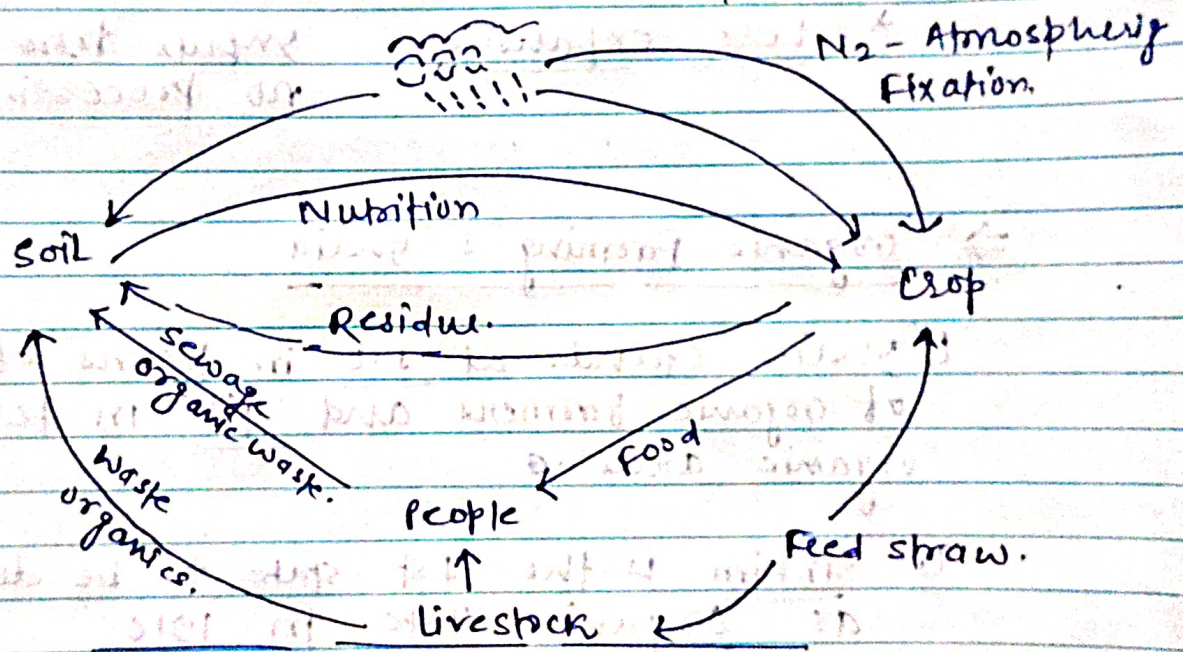 N2 - Atmospheric
Fixation.
Nutrition
Soil
Crop
Residue.
Sewage
organic waste.
Food
waste
organics.
People
Feed straw.
Livestock